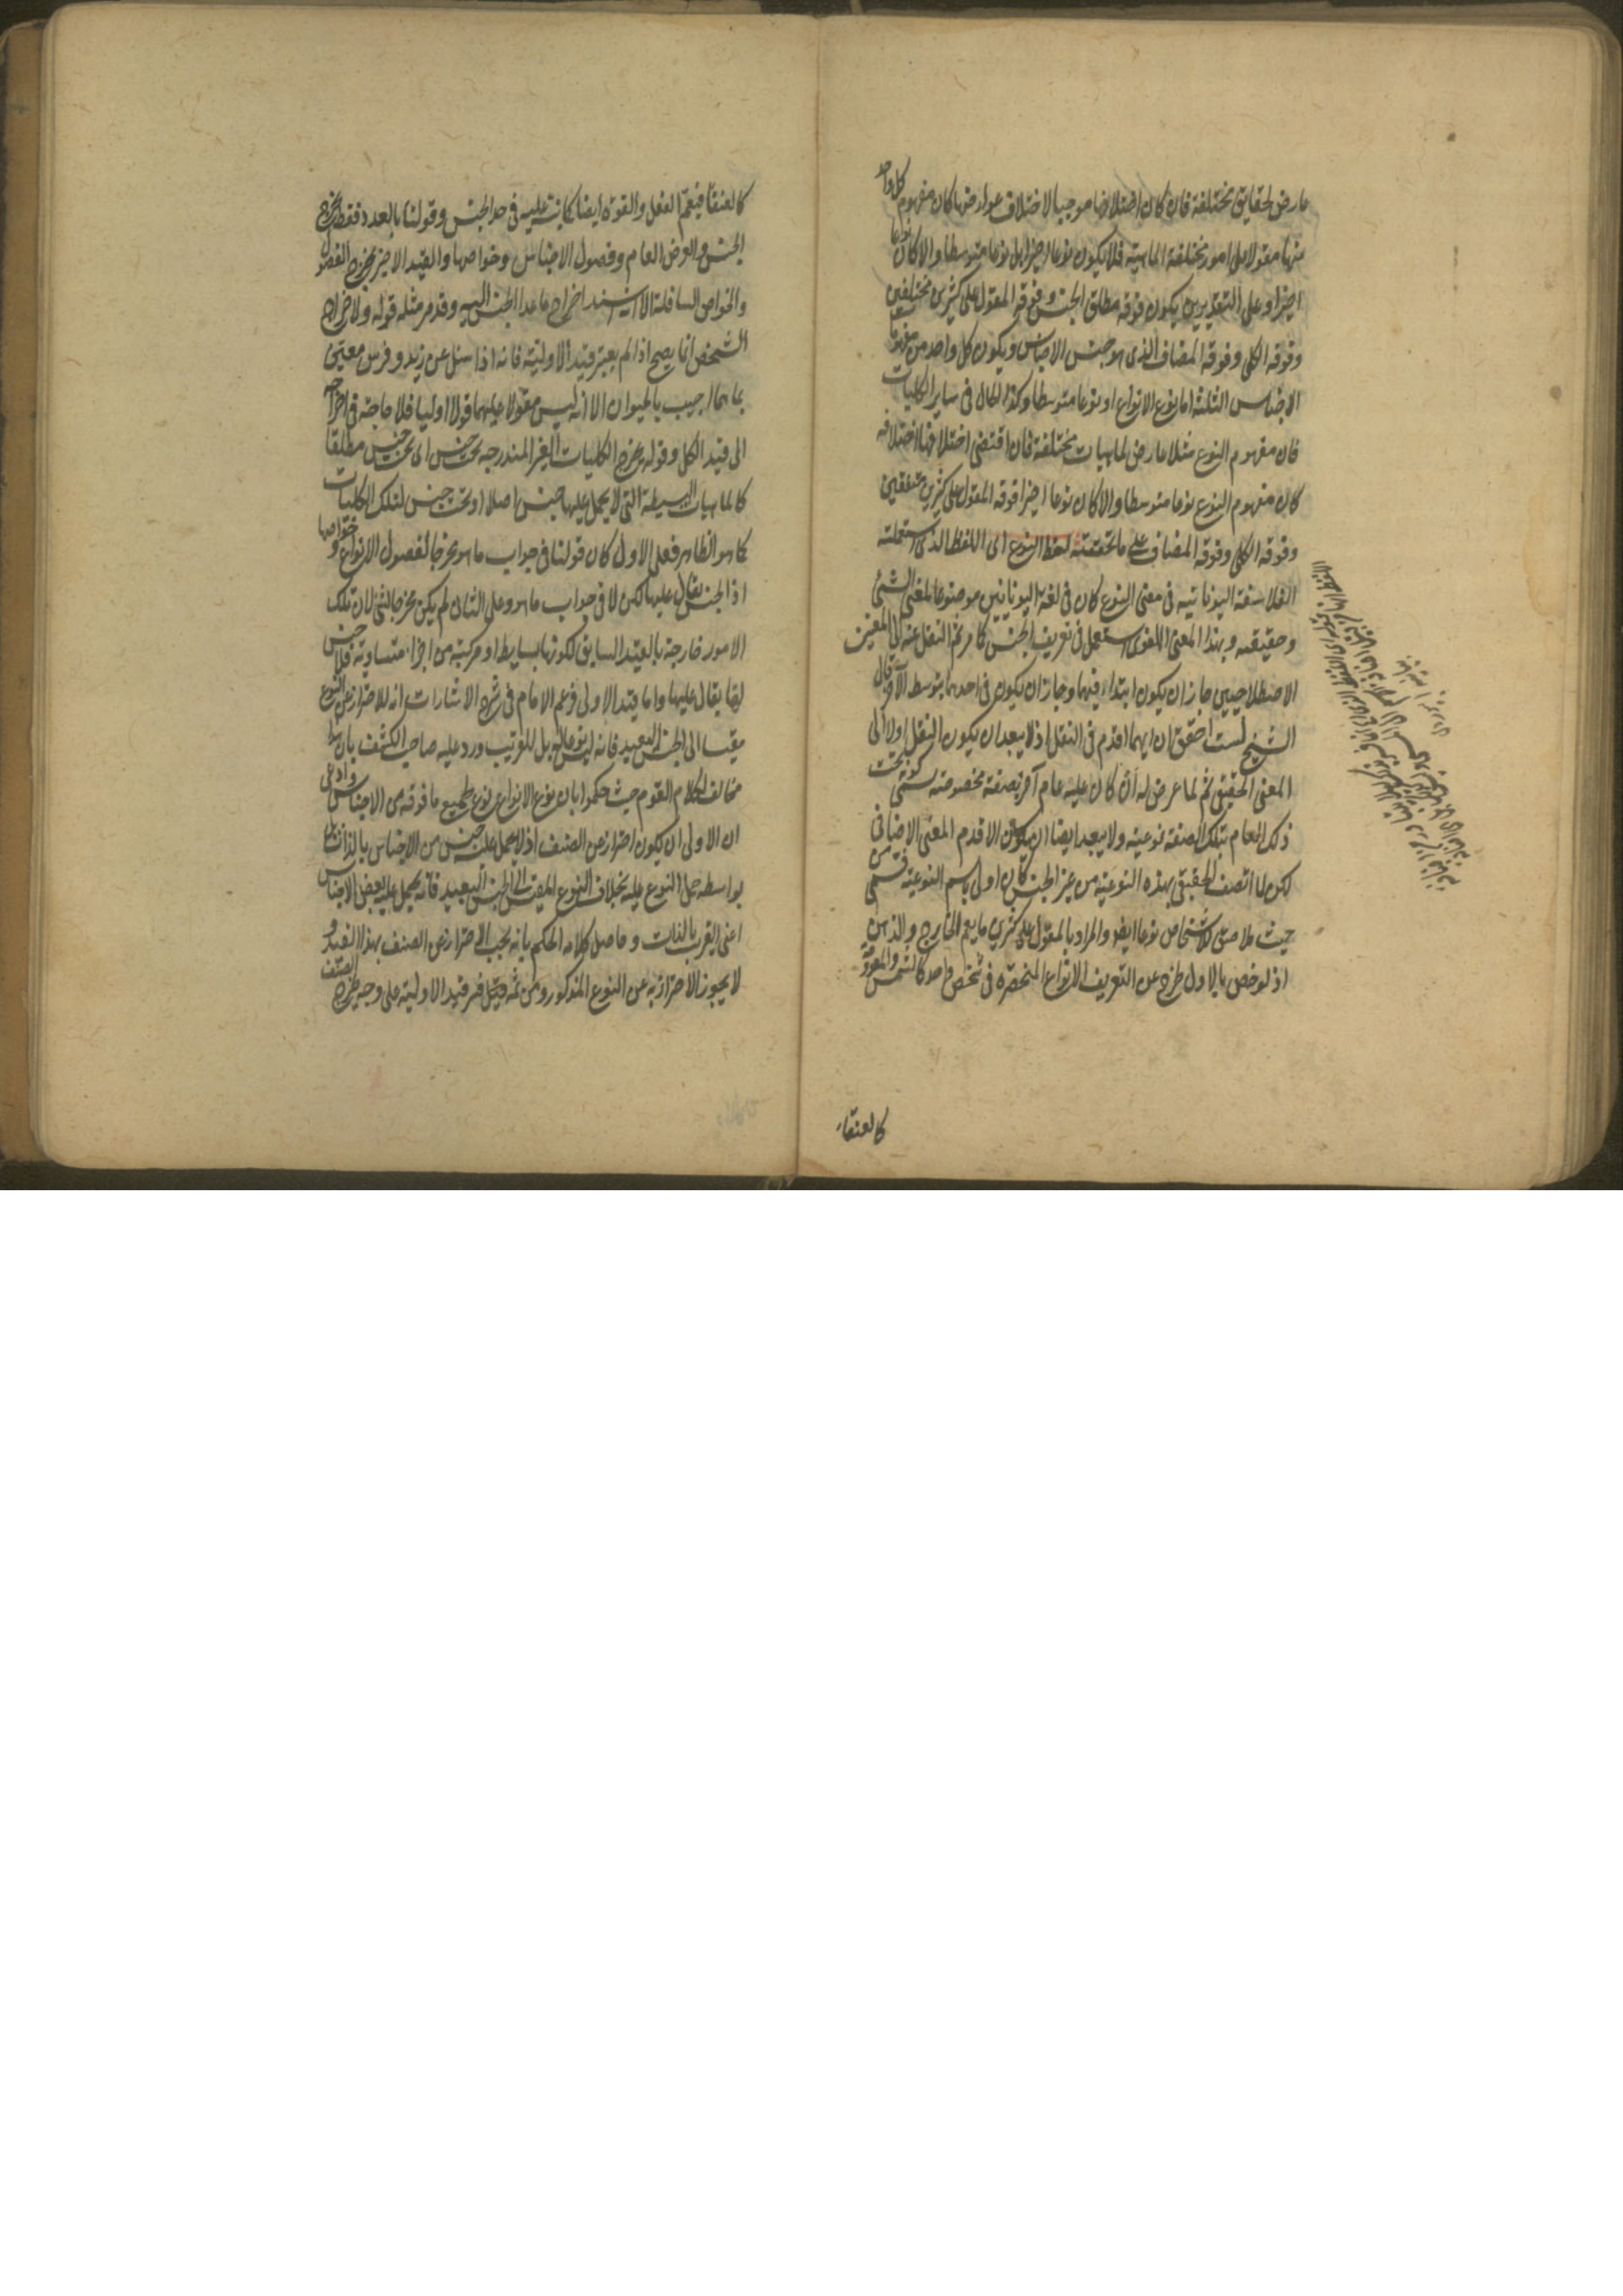 عارض لحقايق مختلفة فان كان اختلافها موجبا لاختلاف عوارضها كان مفهوم كل واحد
منها مقولا على امور مختلفة الماهية فلا يكون نوعا اخيرا بل نوعا متوسطا والا كان نوعا
اخيرا وعلى التقديرين يكون فوقه مطلق الجنس وفوقه المقول على كثيرين مختلفين
وفوقه الكلى وفوقه المضاف الذى هو جنس الاجناس ويكون كل واحد من
الاجناس الثلثة اما نوع الانواع او نوعا متوسطا وكذا الحال فى ساير الكليات
فان مفهوم النوع مثلا عارض لماهيات مختلفة فان اقتضى اختلافها اختلافه
كان مفهوم النوع نوعا متوسطا والا كان نوعا اخيرا فوقه المقول على كثيرين متفقين
وفوقه الكلى وفوقه المضاف على ما تحققته لفظ النوع اى اللفظ الذى استعملته
الفلاسفة اليونانية فى معنى النوع كان فى لغة اليونانيين موضوعا لمعنى الشئ
وحقيقته وبهذا المعنى اللغوى استعمل فى تعريف الجنس كما مر ثم النقل عنه الى المعنيين
الاصطلاحيين جاز ان يكون ابتداء فيهما وجاز ان يكون فى احدهما بتوسط الآخر قال
الشيخ لست احقق ان ايهما اقدم فى النقل اذ لا يبعد ان يكون النقل اولا الى
المعنى الحقيقى ثم لما عرض له ان كان عليه عام آخر بصفة مخصوصة سمى كونه تحت
ذلك العام بتلك الصفة نوعية ولا يبعد ايضا ان يكون الاقدم المعنى الاضافى
لكن لما اتصف الحقيقى بهذه النوعية من غير الجنس كان اولى باسم النوعية فسمى من
حيث ملاصق للاشخاص نوعا ايضا والمراد بالمقول على كثيرين ما يعم الخارج والذهن
اذ لو خص بالاول خرج عن التعريف الانواع المنحصرة فى شخص واحد كالشمس والمعدومة
كالعنقاء
كالعنقا فيعم الفعل والقوة ايضا كما نبه عليه فى حد الجنس وقولنا بالعدد فقط يخرج
الجنس والعرض العام وفصول الاجناس وخواصها والقيد الاخير يخرج الفصول
والخواص السافلة الا انه اسند اخراج ما عدا الجنس اليه وقد مر مثله قوله ولاخراج
الشخص انما يصح اذا لم يعتبر قيد الاولية فانه اذا سئل عن زيد وفرس معين
بما هما اجيب بالحيوان الا انه ليس مقولا عليهما قولا اوليا فلا حاجة فى اخراجه
الى قيد الكل وقوله يخرج الكليات الغير المندرجة تحت جنس اى تحت جنس مطلقا
كالماهيات البسيطة التى لا يحمل عليها جنس اصلا او تحت جنس لتلك الكليات
كما هو الظاهر فعلى الاول كان قولنا فى جواب ما هو مخرجا لفصول الانواع وخواصها
اذ الجنس يقال عليها لكن لا فى جواب ما هو وعلى الثانى لم يكن مخرجا لشئ لان تلك
الامور خارجة بالقيد السابق لكونها بسايط او مركبة من اجزاء متساوية فلا جنس
لها يقال عليها واما قيد الاولى فزعم الامام فى شرح الاشارات انه للاحتراز عن النوع
مقيسا الى الجنس البعيد فانه ليس نوعا له بل للقريب ورد عليه صاحب الكشف بان هذا
مخالف لكلام القوم حيث حكموا بان نوع الانواع نوع لجميع ما فوقه من الاجناس وادعى
ان الاولى ان يكون احترازا عن الصنف اذ لا يحمل عليه جنس من الاجناس بالذات بل
بواسطة حمل النوع عليه بخلاف النوع المقيس الى الجنس البعيد فانه يحمل عليه بعض الاجناس
اعنى القريب بالذات وحاصل كلامه الحكم بانه يجب الاحتراز عن الصنف بهذا القيد و
لا يجوز الاحتراز به عن النوع المذكور ومن ثمه قيل فسر قيد الاولية على وجه يخرج الصنف